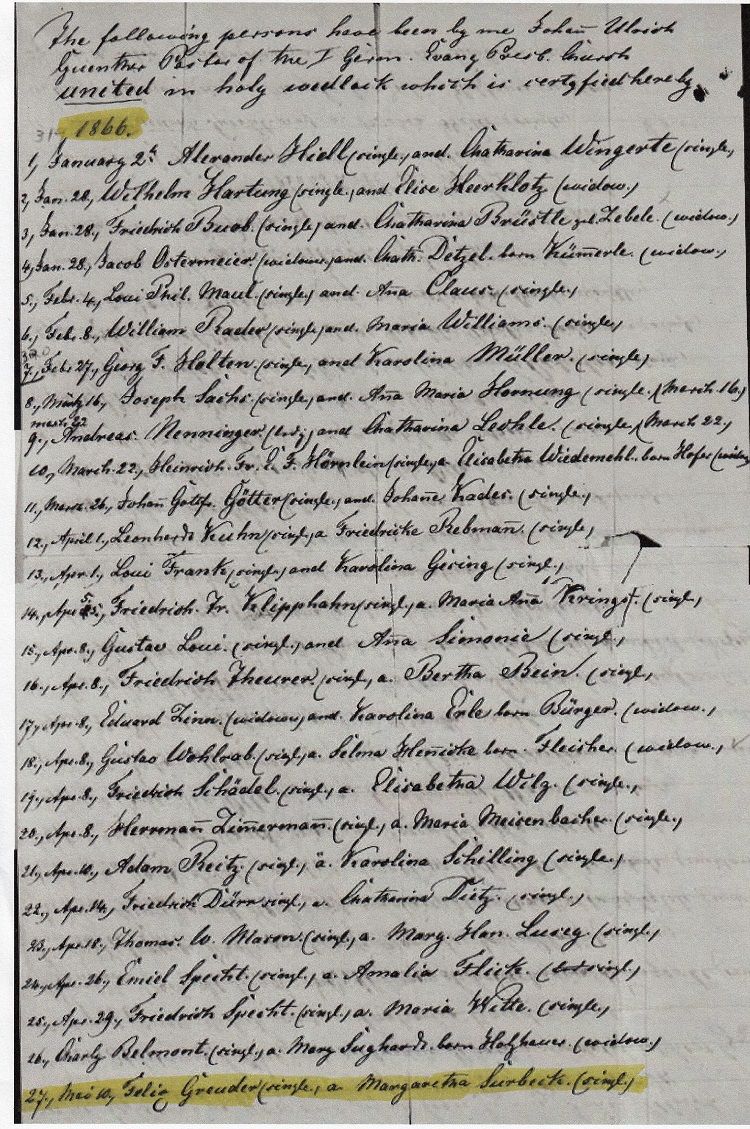 The following persons have been by me Johañ Ulrich
Guenther Pastor of the I Germ. Evang. Presb. Church
united in holy wedlock which is certyfied hereby
1866.
1, January 2. Alexander Hiell (single,) and. Chatharina Wingerte (single,
2, Jan. 20, Wilhelm Hartung (single.,) and Elise Heerklotz (widow.)
3, Jan. 28., Friedrich Buob. (single) and. Chatharina Brüstle Zebele. (widow.)
4, Jan. 28., Jacob Ostermeier. (widower,) and. Chath. Detzel. born Küm̄erle. (widow.,
5., Febr. 4., Loui Phil. Maul. (single,) and. Aña Claus. (single.,
6., Feb. 8., William Rader (single,) and. Maria Williams. (single,
7., Feb. 27, Georg F. Holten. (single,) and Karolina Müller. (single,
8., März 16, Joseph Sachs. (single,) and. Aña Maria Hornung (single.,) (March. 16.)
march. 22
9., Andreas. Nenninger. and Chatharina Leohle. (single,) (March 22,
10, March. 22, Heinrich. Fr. E. F. Hörnlein (single,) a. Elisabetha Wiedemehl. born Hofer (widow
11, March. 26, Johañ Gottfr. Götter (single,) and. Johañe Kades. (single.,
12., April 1., Leonhardt Kuhn (singl.,) a Friedricke Rebmañ. (single,
13., Apr. 1., Loui Frank, (single,) and Karolina Gising (singl.,
14., Apr. 5, Friedrich. Fr. Klipphahn (singl.,) a. Maria Aña Krings. (singl.,
15., Apr. 8., Gustav Loui. (singl.,) and Aña Simonie (singl.,
16., Apr. 8., Friedrich Theurer. (singl.,) a. Bertha Bein. (singl.,
17., Apr. 8., Eduard Zinn. (widower,) and. Karolina Erle born Bürger. (widow.,
18., Apr. 8., Gustav Wohlrab. (singl.,) a. Selma Henicke born. Fleisher. (widow.,
19., Apr. 8., Friedrich Schädel. (singl.,) a. Elisabetha Wilz. (single.,
20., Apr. 8., Herrmañ Zim̄ermañ. (singl., a. Maria Meisenbacher. (single.,
21., Apr. 10., Adam Reitz. (singl., a. Karolina Schilling (single.,
22., Apr. 14., Friedrich Dürr singl., a. Chatharina Dietz. (singl.,
23., Apr. 18., Thomas. W. Mason. (singl.,) a. Marg. Han. Luseg. (singl.,
24., Apr. 26., Emiel Specht. (singl.,) a. Amalia Flick. (singl.,
25., Apr. 29., Friedrich Specht. (singl.,) a. Maria Witte. (single.,
26., Charly Belmont. (singl.,) a. Mary Sughardt. born Holzhauer. (widow.)
27., Mai 10, Felix Greuder (single., a. Margaretha Surbeck. (singl.,